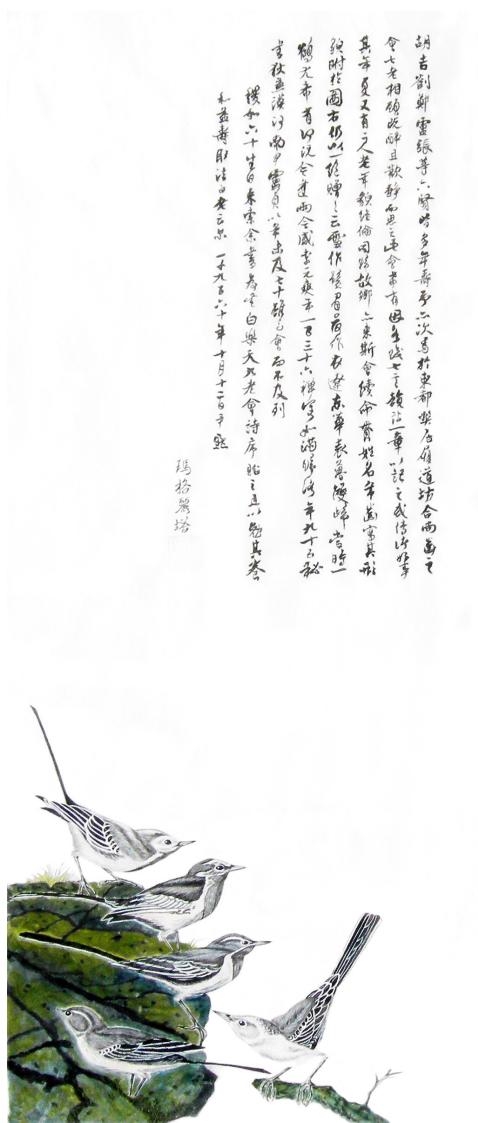 胡吉劉鄭雷張等六賢皆多年壽予亦次焉於東都弊居履道坊合尚齒之
會七老相顧既醉且歡靜而思之此會常有因各賦七言韻詩一章以記之或傳諸好事
其年夏又有二人老年貌絕倫同歸故鄉亦來斯會續命書姓名年齒寫其形
貌附於圖右仍以一絕贈之云雪作鬚眉雲作衣遼東華表鶴雙歸當時一
鶴尤希有何況今逢兩令威李元爽年一百三十六禪僧如滿歸洛年九十五秘
書狄兼謨河南尹盧貞以年未及七十雖與會而不及列
如六十生日來索余書為書白樂天九老會詩序貽之且以勉其養
和益壽取法白老云尔 一千九百六十年十月十二日
瑪格麗塔